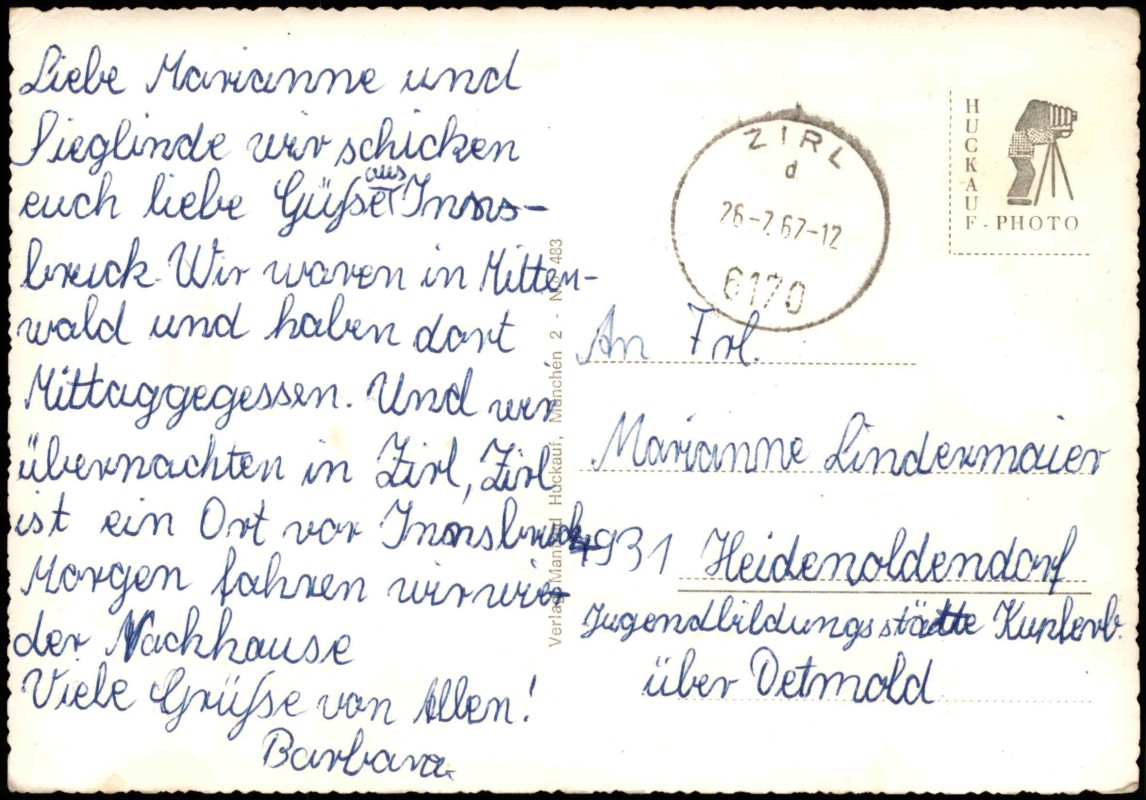 Liebe Marianne und
Sieglinde wir schicken
euch liebe Güße aus Inns-
bruck. Wir waren in Mitten-
wald und haben dort
Mittaggegessen. Und wir
übernachten in Zirl, Zirl
ist ein Ort vor Innsbruck
Morgen fahren wir wie-
der Nachhause
Viele Grüße von Allen!
Barbara
Verlag Manfred Huckauf, München 2 - No. 483
ZIRL
d
26-7.67-12
6170
HUCKAUF-PHOTO
An Frl.
Marianne Lindermaier
4931 Heidenoldendorf
Jugendbildungsstädte
über Detmold